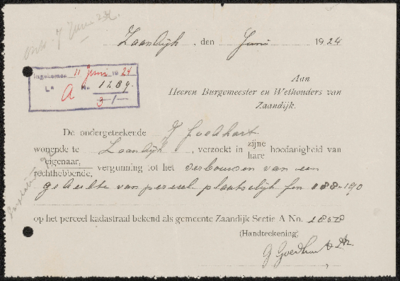 Zaandijk, den Juni 1924
Ingekomen 11 Juni 1924
La. A No. 1209
Aan
Heeren Burgemeester en Wethouders van
Zaandijk.
De ondergeteekende G. Goedhart
wonende te Zaandijk, verzoekt in zijne hare hoedanigheid van
eigenaar, rechthebbende, vergunning tot het verbouwen van een
gedeelte van perceel plaatselijk gm 188-190
op het perceel kadastraal bekend als gemeente Zaandijk Sectie A No. 1858
(Handteekening)
G Goedhart